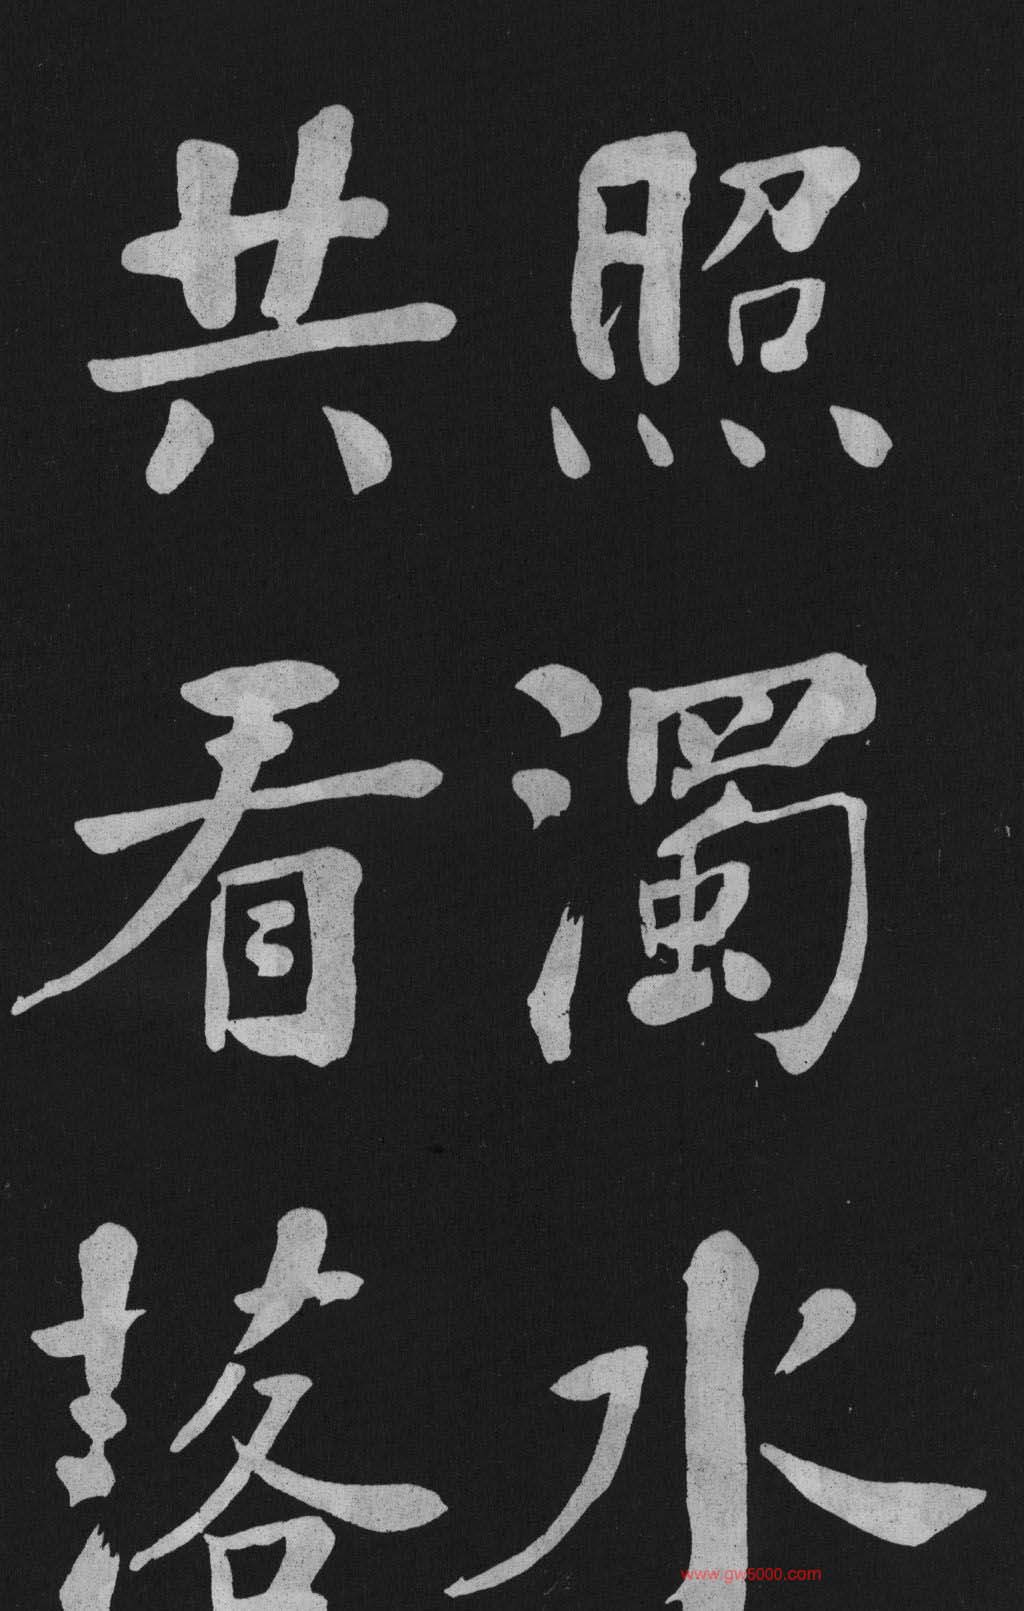 照濁水
共看落
www.gw6000.com